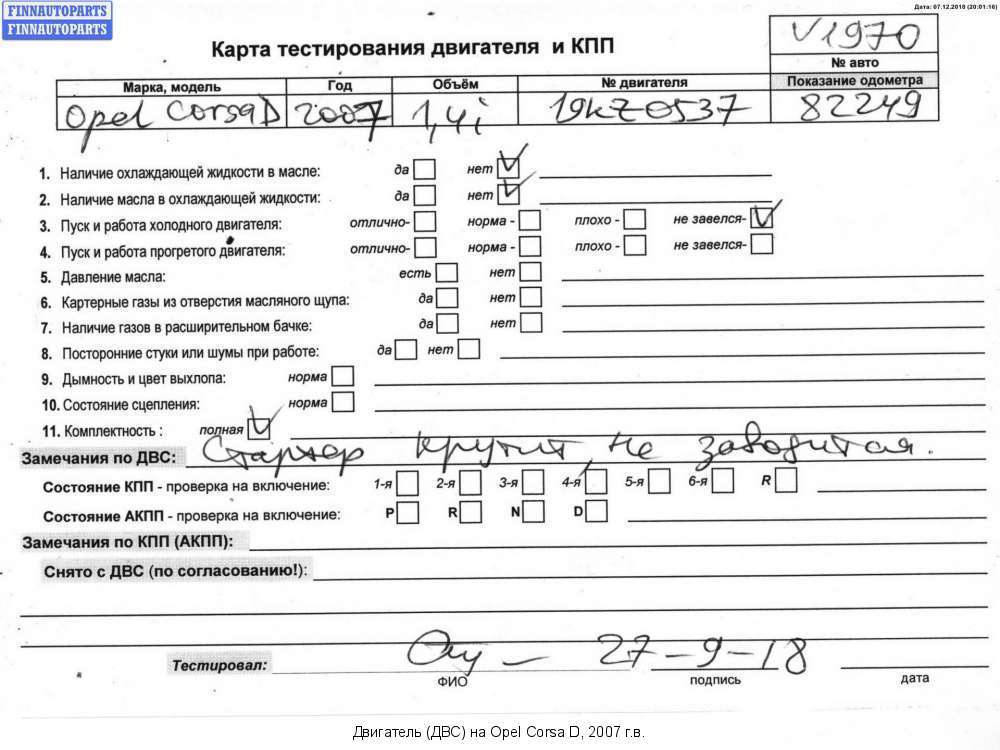 FINNAUTOPARTS
FINNAUTOPARTS
Дата: 07.12.2018 (20:01:16)
V1970
Карта тестирования двигателя и КПП
№ авто
Марка, модель Год Объём № двигателя Показание одометра
Opel Corsa D 2007 1,4i 19KZ0537 82249
1. Наличие охлаждающей жидкости в масле: да нет
2. Наличие масла в охлаждающей жидкости: да нет
3. Пуск и работа холодного двигателя: отлично- норма - плохо - не завелся-
4. Пуск и работа прогретого двигателя: отлично- норма - плохо - не завелся-
5. Давление масла: есть нет
6. Картерные газы из отверстия масляного щупа: да нет
7. Наличие газов в расширительном бачке: да нет
8. Посторонние стуки или шумы при работе: да нет
9. Дымность и цвет выхлопа: норма
10. Состояние сцепления: норма
11. Комплектность : полная
Замечания по ДВС: Стартер крутит, не заводится.
Состояние КПП - проверка на включение: 1-я 2-я 3-я 4-я 5-я 6-я R
Состояние АКПП - проверка на включение: P R N D
Замечания по КПП (АКПП):
Снято с ДВС (по согласованию!):
Тестировал: 27-9-18
ФИО подпись дата
Двигатель (ДВС) на Opel Corsa D, 2007 г.в.